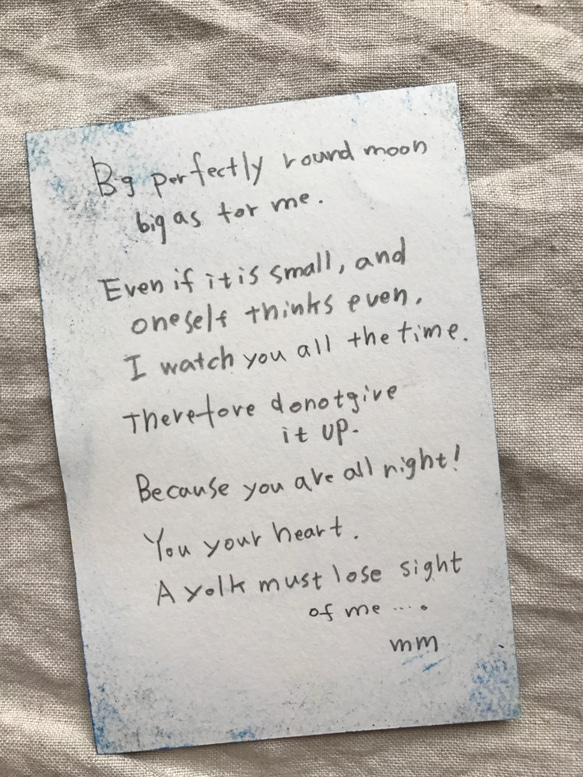 Bg perfectly round moon
big as for me.
Even if it is small, and
oneself thinks even,
I watch you all the time.
Therefore donotgive
it up.
Because you are all night!
You your heart.
A yolk must lose sight
of me ....
mm